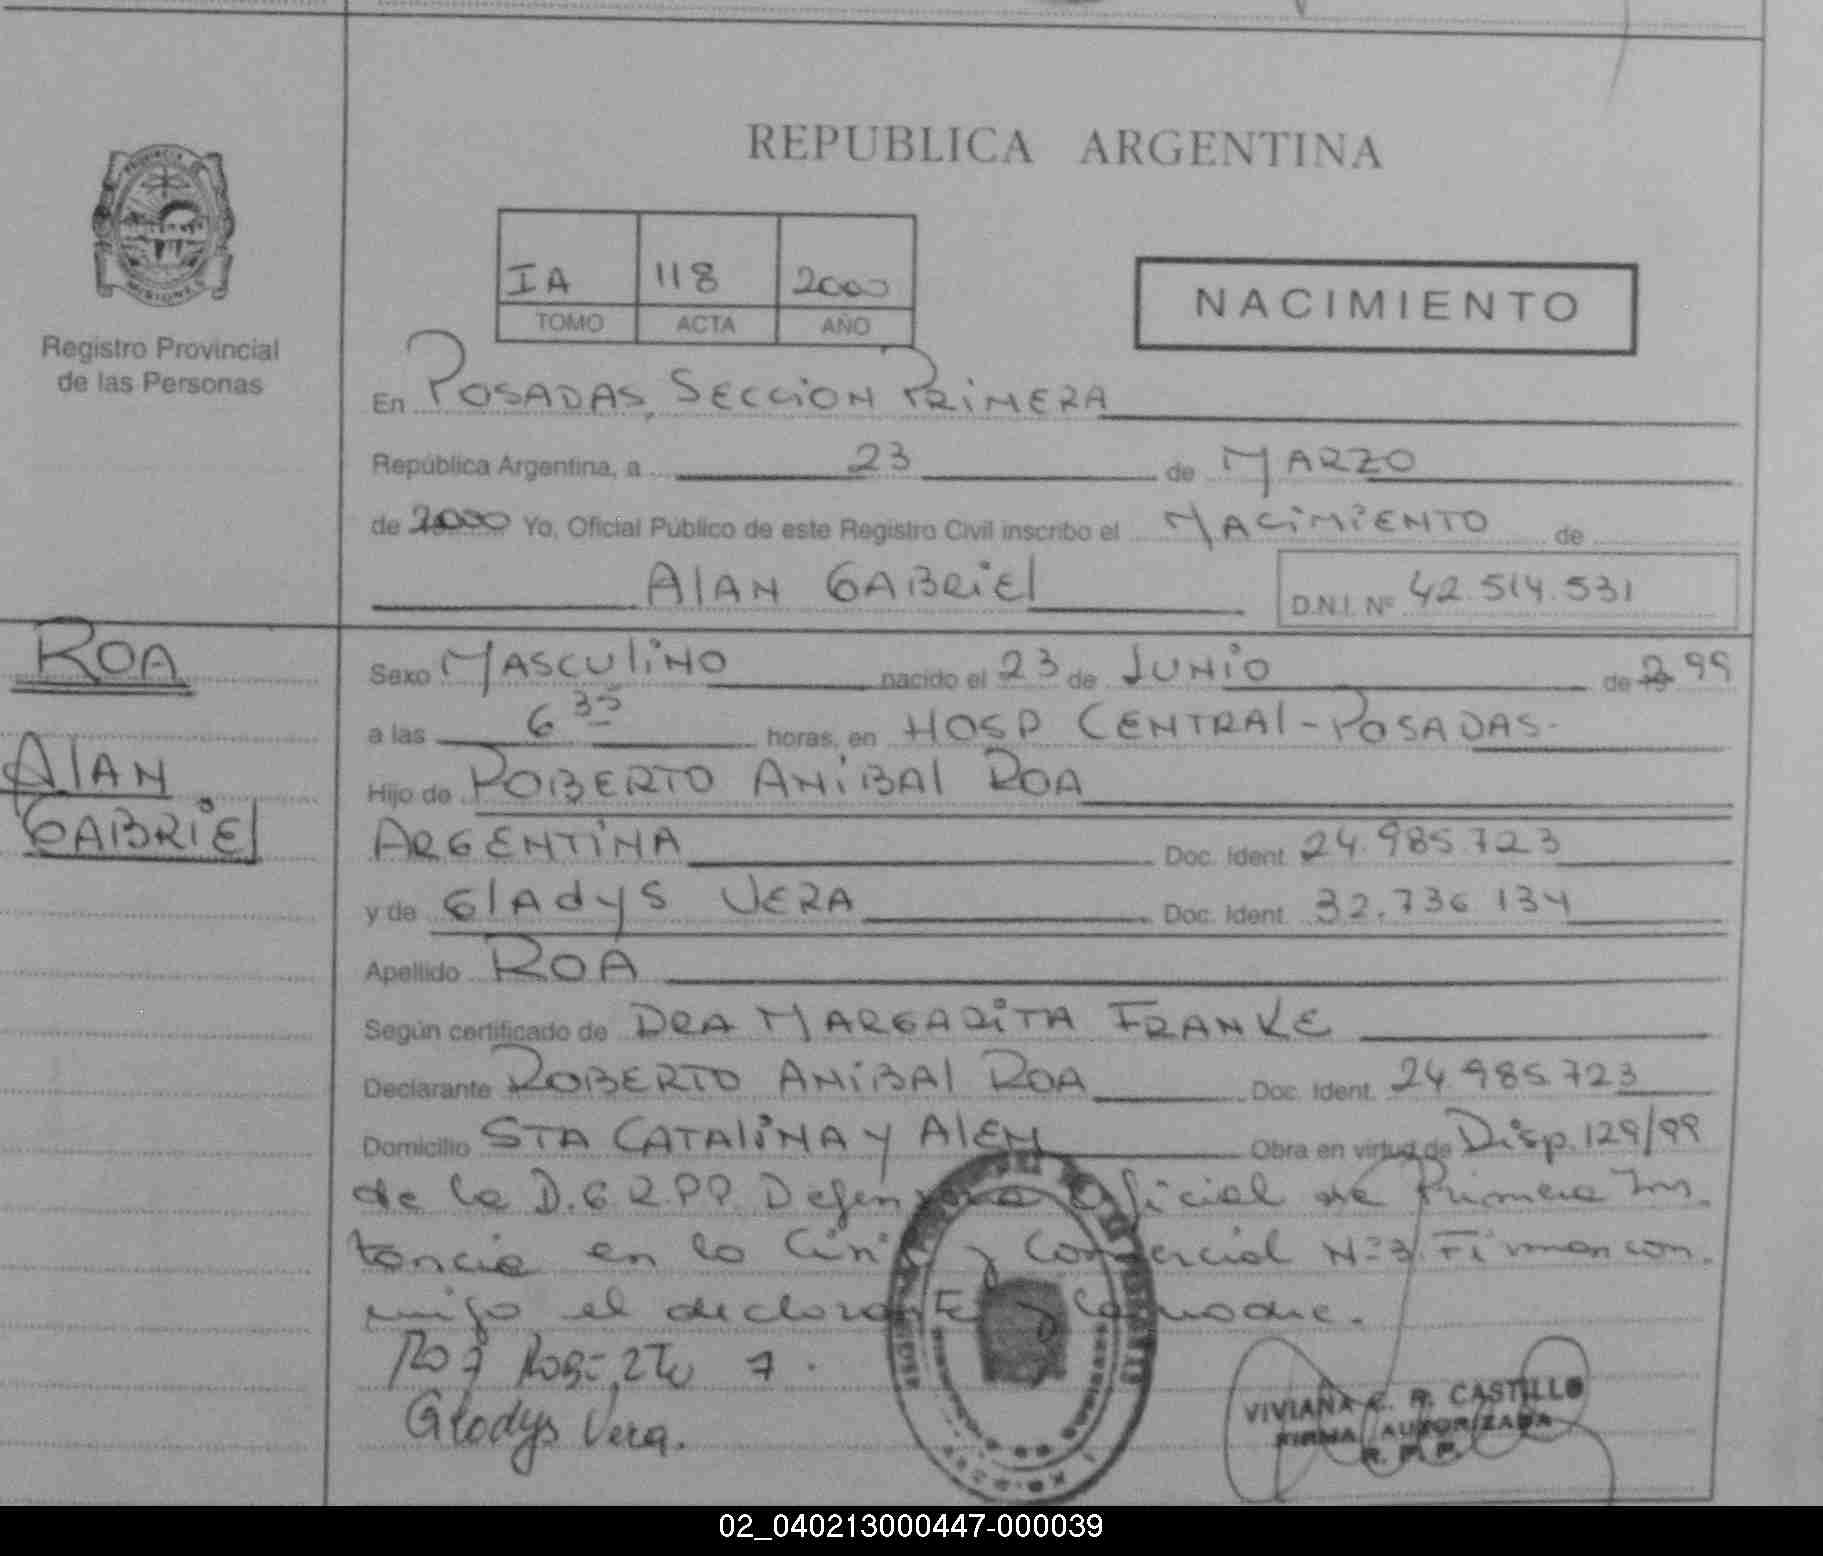 REPUBLICA ARGENTINA
PROVINCIA DE
MISIONES
Registro Provincial
de las Personas
IA 118 2000
TOMO ACTA AÑO
NACIMIENTO
En POSADAS, SECCION PRIMERA
República Argentina, a 23 de MARZO
de 2000 Yo, Oficial Público de este Registro Civil inscribo el NACIMIENTO de
ALAN GABRIEL D.N.I. Nº 42.514.531
ROA
ALAN
GABRIEL
Sexo MASCULINO nacido el 23 de JUNIO de 99
a las 6 35 horas, en HOSP CENTRAL-POSADAS-
Hijo de ROBERTO ANIBAL ROA
ARGENTINA Doc. Ident. 24.985.723
y de GLADYS VERA Doc. Ident. 32.736 134
Apellido ROA
Según certificado de DRA MARGARITA FRANKE
Declarante ROBERTO ANIBAL ROA Doc. Ident. 24 985 723
Domicilio STA CATALINA Y ALEM Obra en virtud de Disp. 129/99
de la D.G.R.P.P. Defensora Oficial de Primera Ins.
tancia en lo Civil y Comercial Nº3. Firman con.
migo el declarante y la madre.
Roa Roberto A.
Gladys Vera.
VIVIANA E. R. CASTILLO
FIRMA AUTORIZADA
R. P. P.
02_040213000447-000039